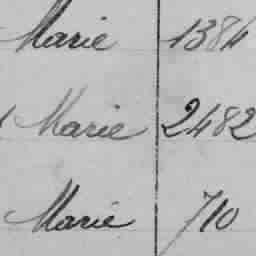 Marie 1384
Marie 2482
Marie 710